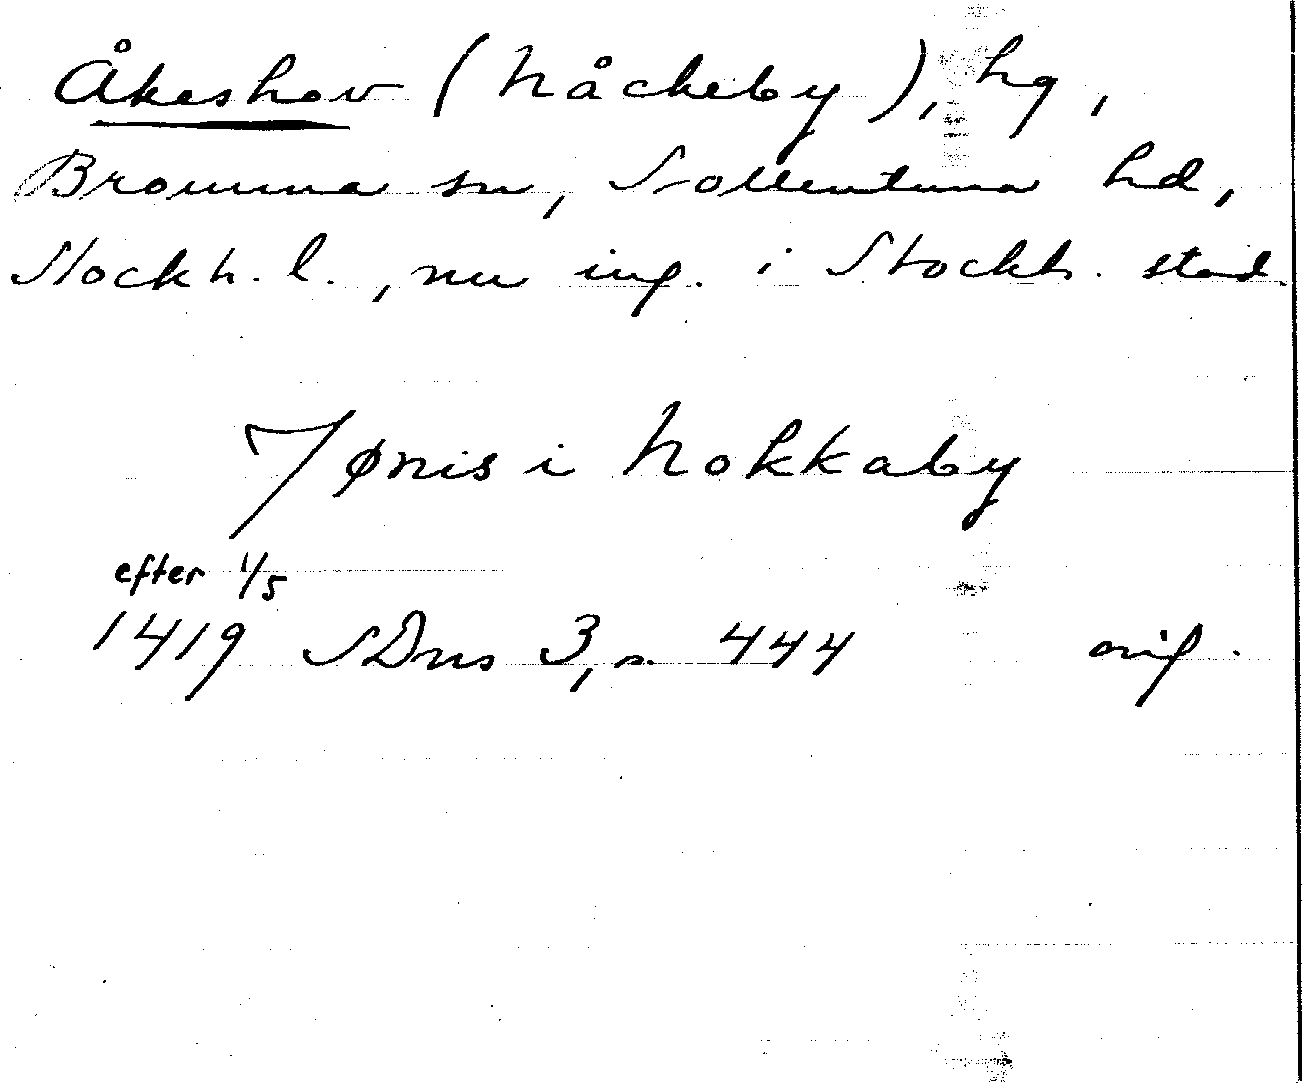 Åkeshov (Nåckeby), hg,
Bromma sn, Sollentuna hd,
Stockh. l., nu ing. i Stockh. stad.
Jønis i Nokkaby
efter 1/5
1419 SDns 3, s. 444 orig.